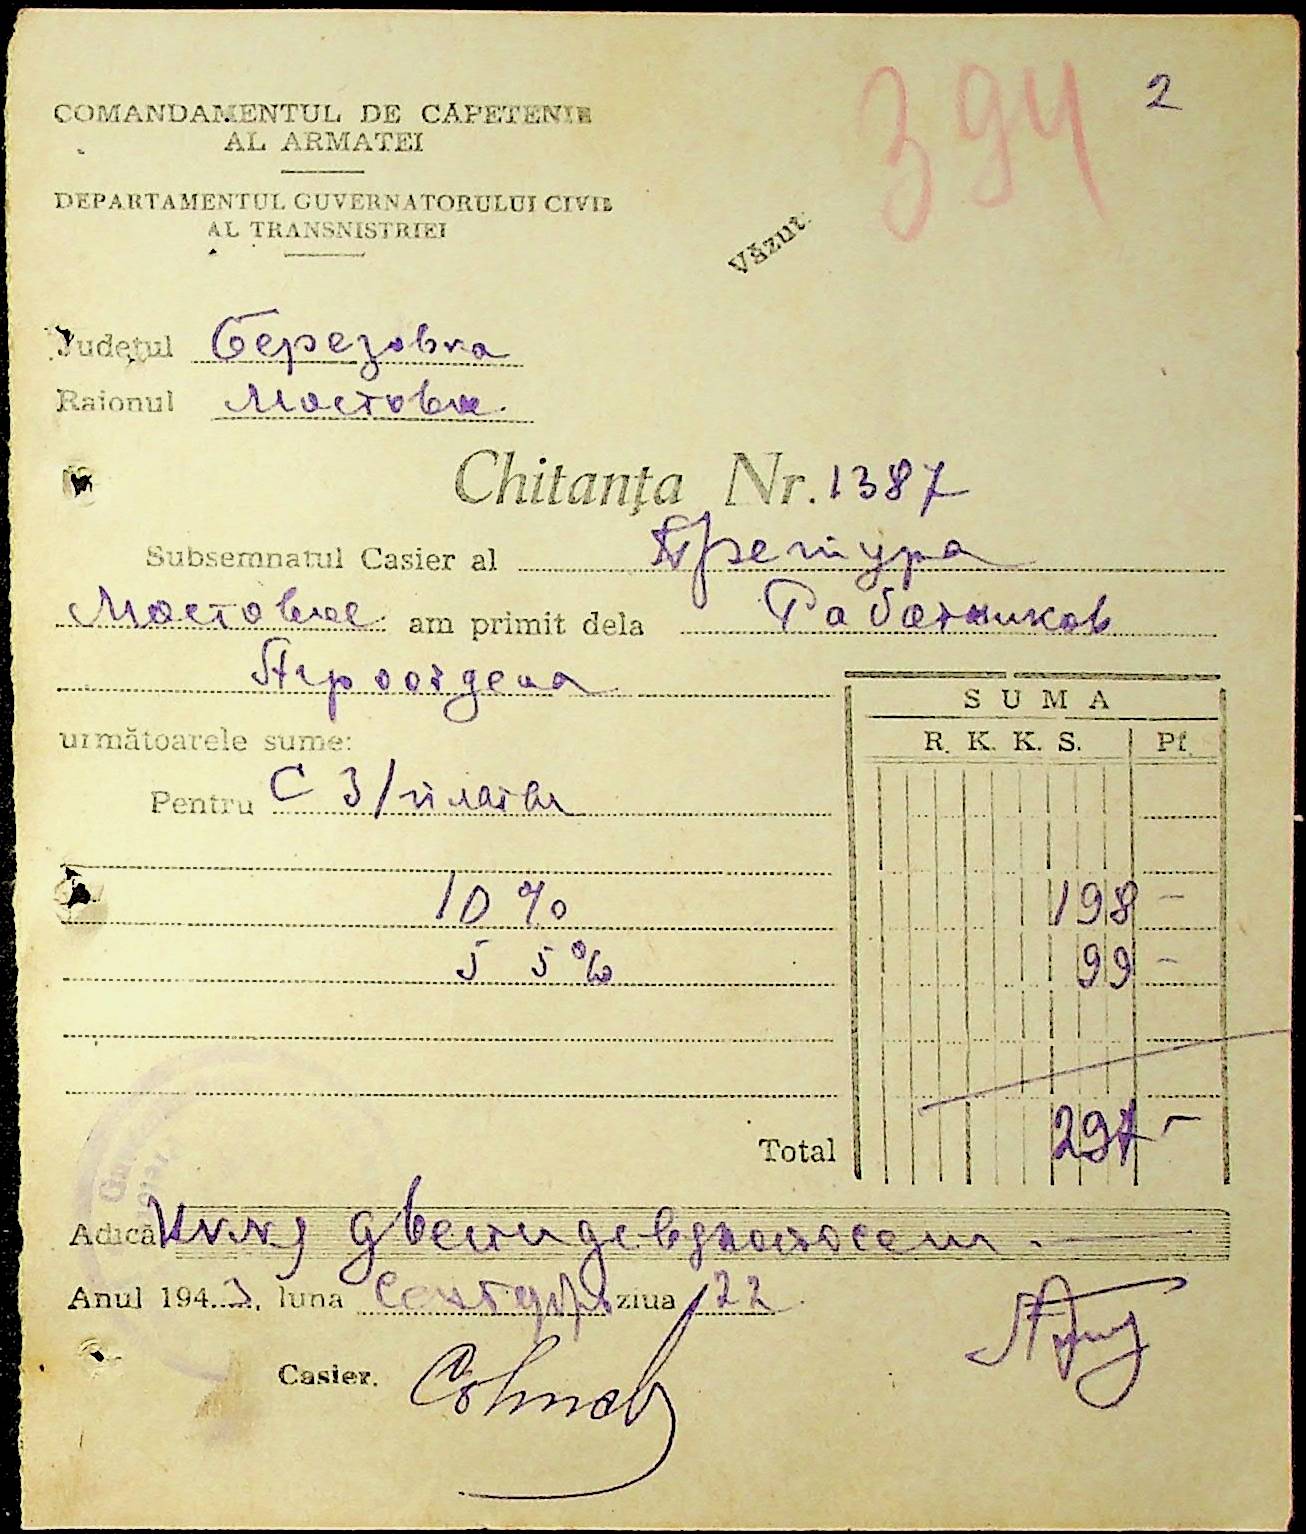 394 2
COMANDAMENTUL DE CĂPETENIE
AL ARMATEI
DEPARTAMENTUL GUVERNATORULUI CIVIL
AL TRANSNISTRIEI
Văzut:
Județul Березовка
Raionul Мостовое
Chitanţa Nr. 1387
Subsemnatul Casier al Претура
Мостовое am primit dela Работников
Агроотдела
SUMA
următoarele sume:
R. K. K. S. Pf.
Pentru С З/платы
10 % 198 -
5 5 % 99 -
Total 297 -
Adică двестидевяностосем
Anul 1943, luna Сентября ziua 22
Casier.